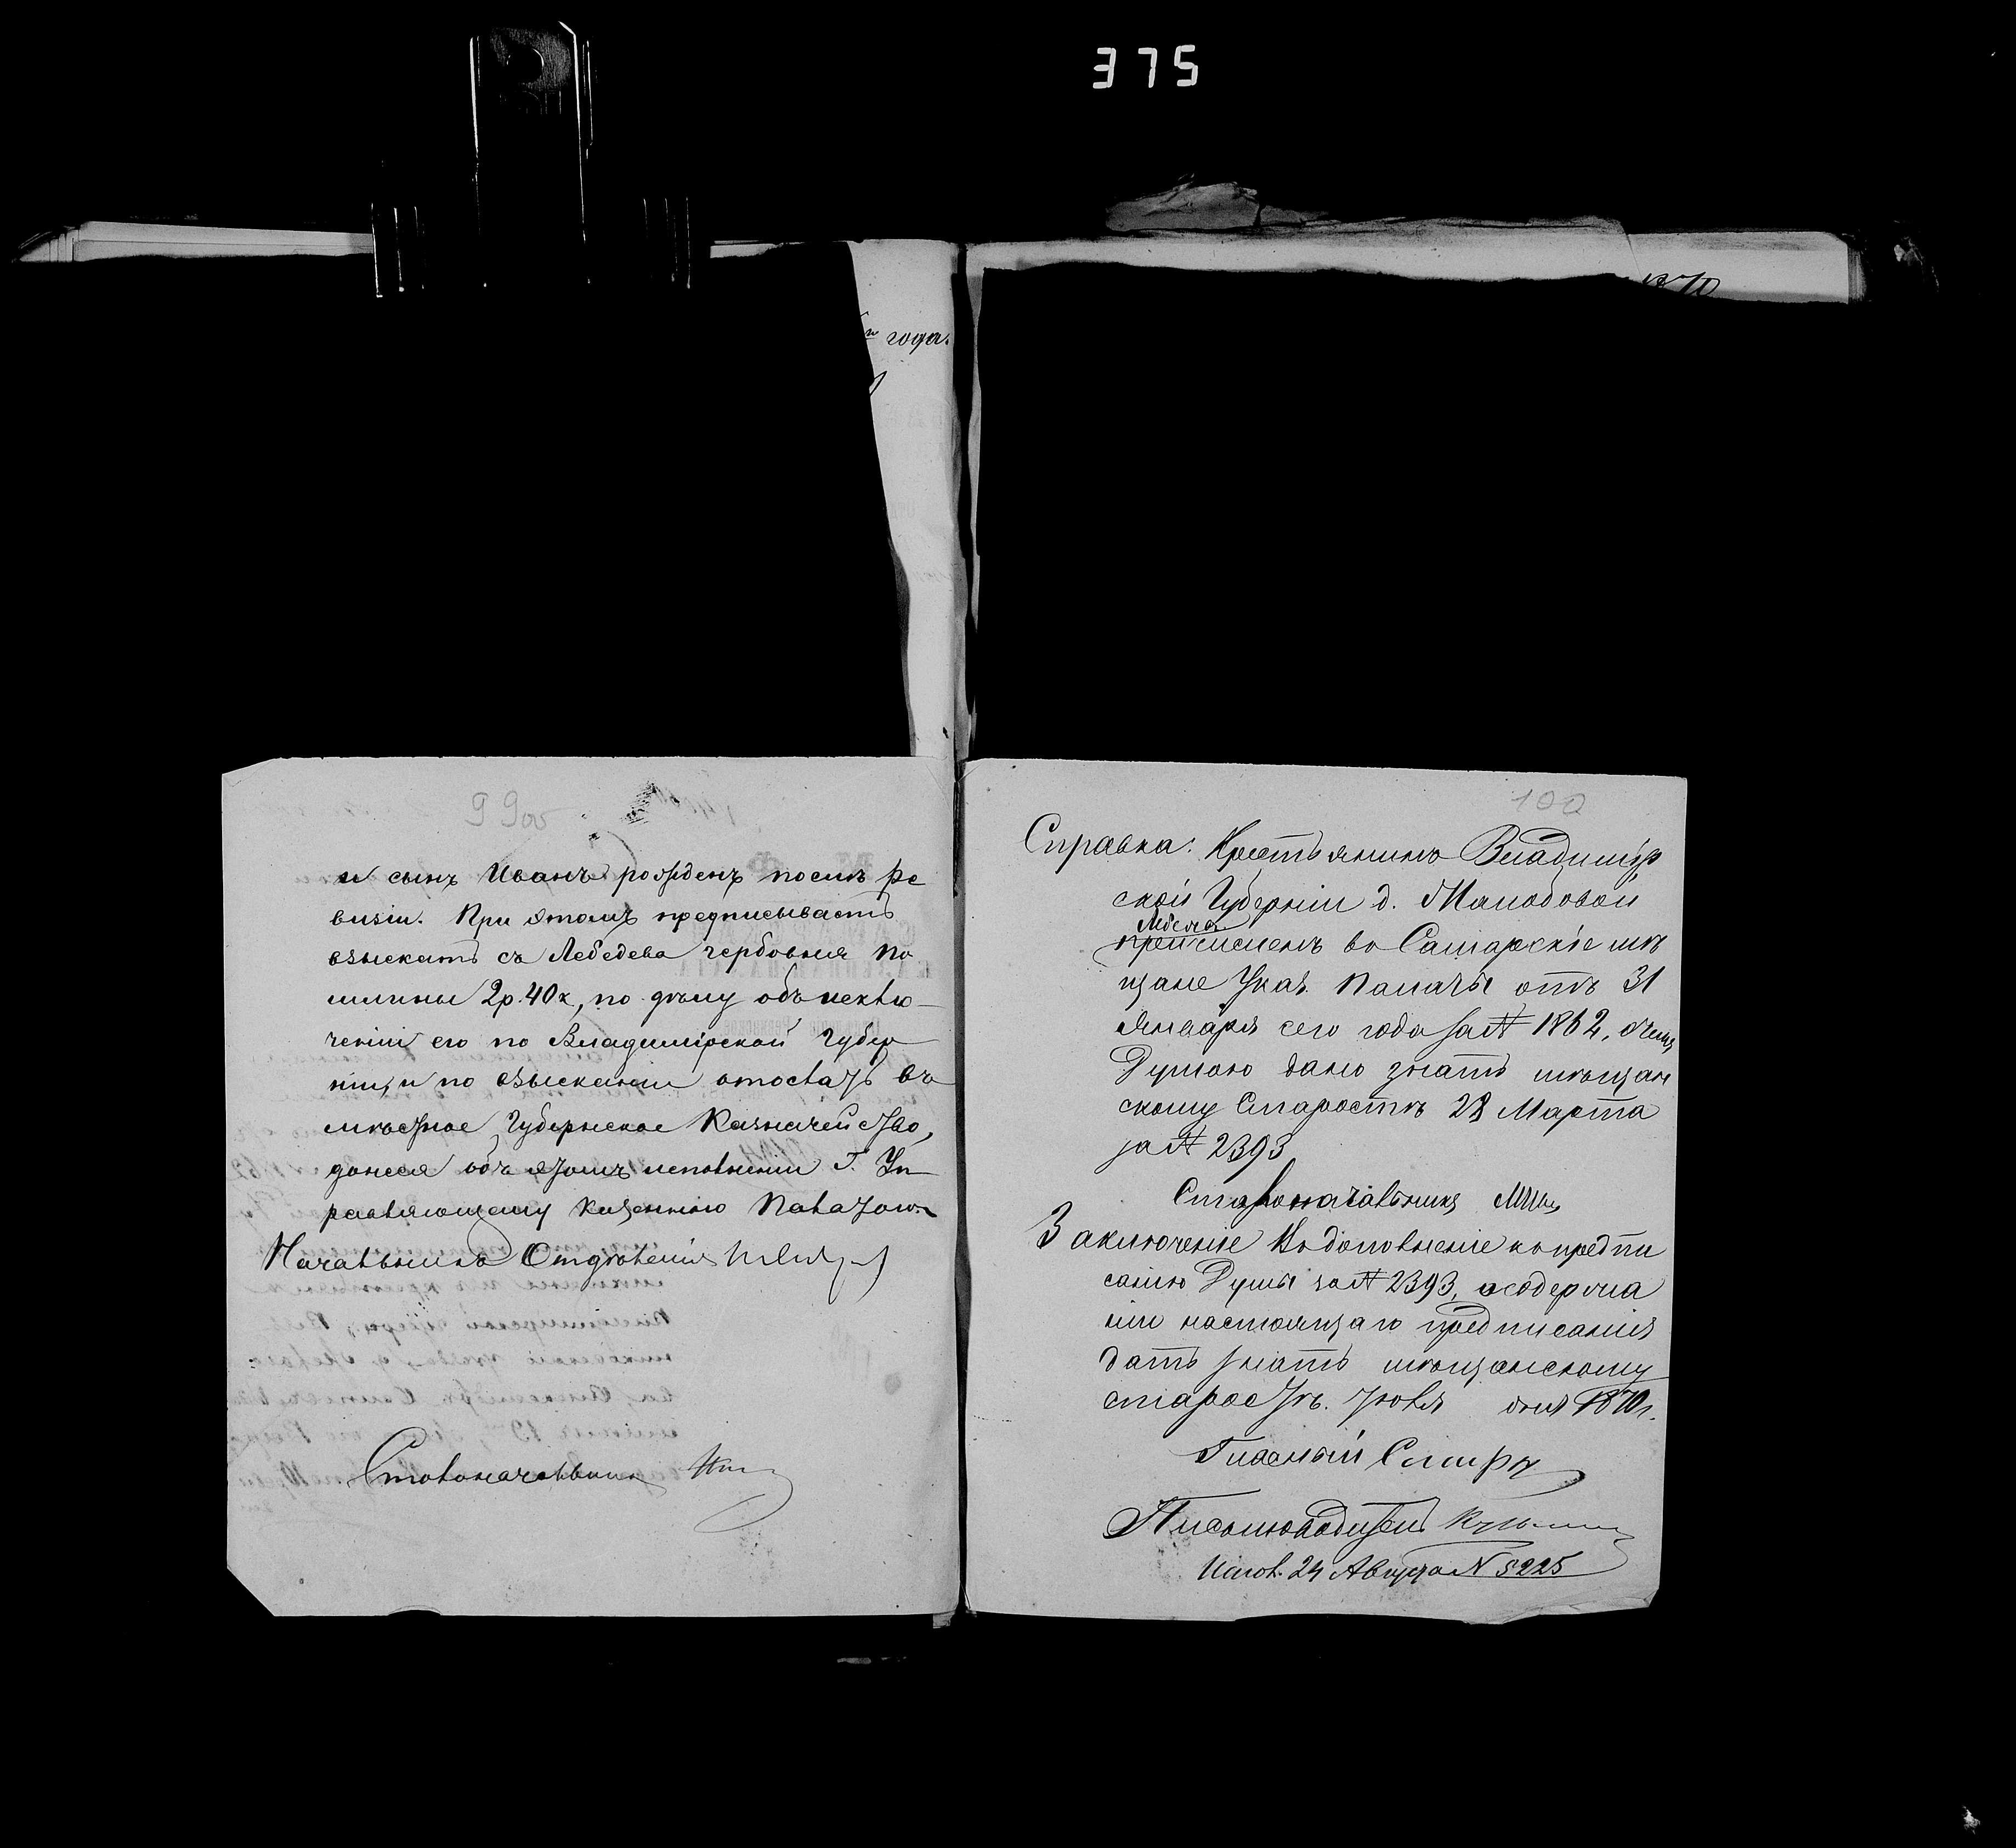 375
1870
года.
99об
и сынъ Иванъ рожденъ послѣ ре
визіи. При этомъ предписываетъ
взыскать съ Лебедева гербовыя по
шлины 2р. 40к, по дѣлу объ исклю
ченіи его по Владимірской Губер
ніи, и по взысканіи отослать въ
мѣстное Губернское Казначейство,
донеся объ этомъ исполненіи Г. Уп
равляющему Казенною Палатою.
Начальникъ Отдѣленія
Столоначальникъ
100
Справка: Крестьянинъ Владимір
ской Губерніи д.
Лебедевъ
причисленъ въ Самарскіе мѣ
щане Указ. Палаты отъ 31
Января сего года за № 1862, о чемъ
Думою дано знать мѣщан
скому Старостѣ 28 Марта
за № 2393
Столоначальникъ
Заключеніе Въ дополненіе къ предпи
санію Думы за № 2393, о содержа
ніи настоящаго предписанія
дать знать мѣщанскому
старостѣ. Іюля дня 1870 г.
Гласный
Письмоводитель
Испол. 24 Августа № 5225